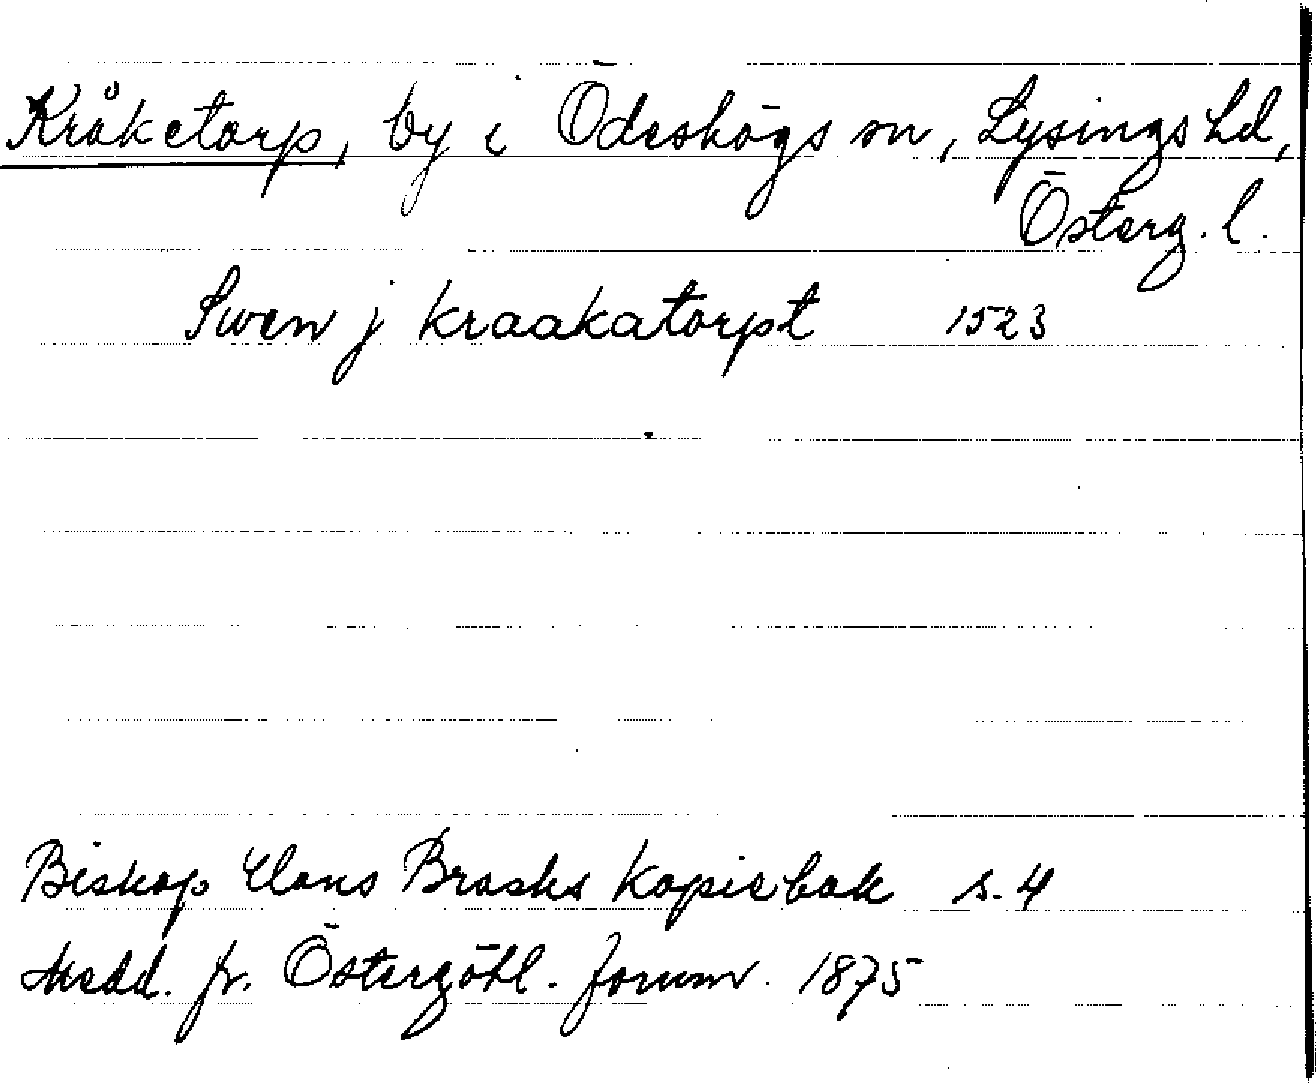 Kråketorp, by i Ödeshögs sn, Lysings hd,
Österg. l.
Swen j kraakatorpt 1523
Biskop Hans Brasks Kopiebok s. 4
Medd. fr. Östergötl. fornm. 1875